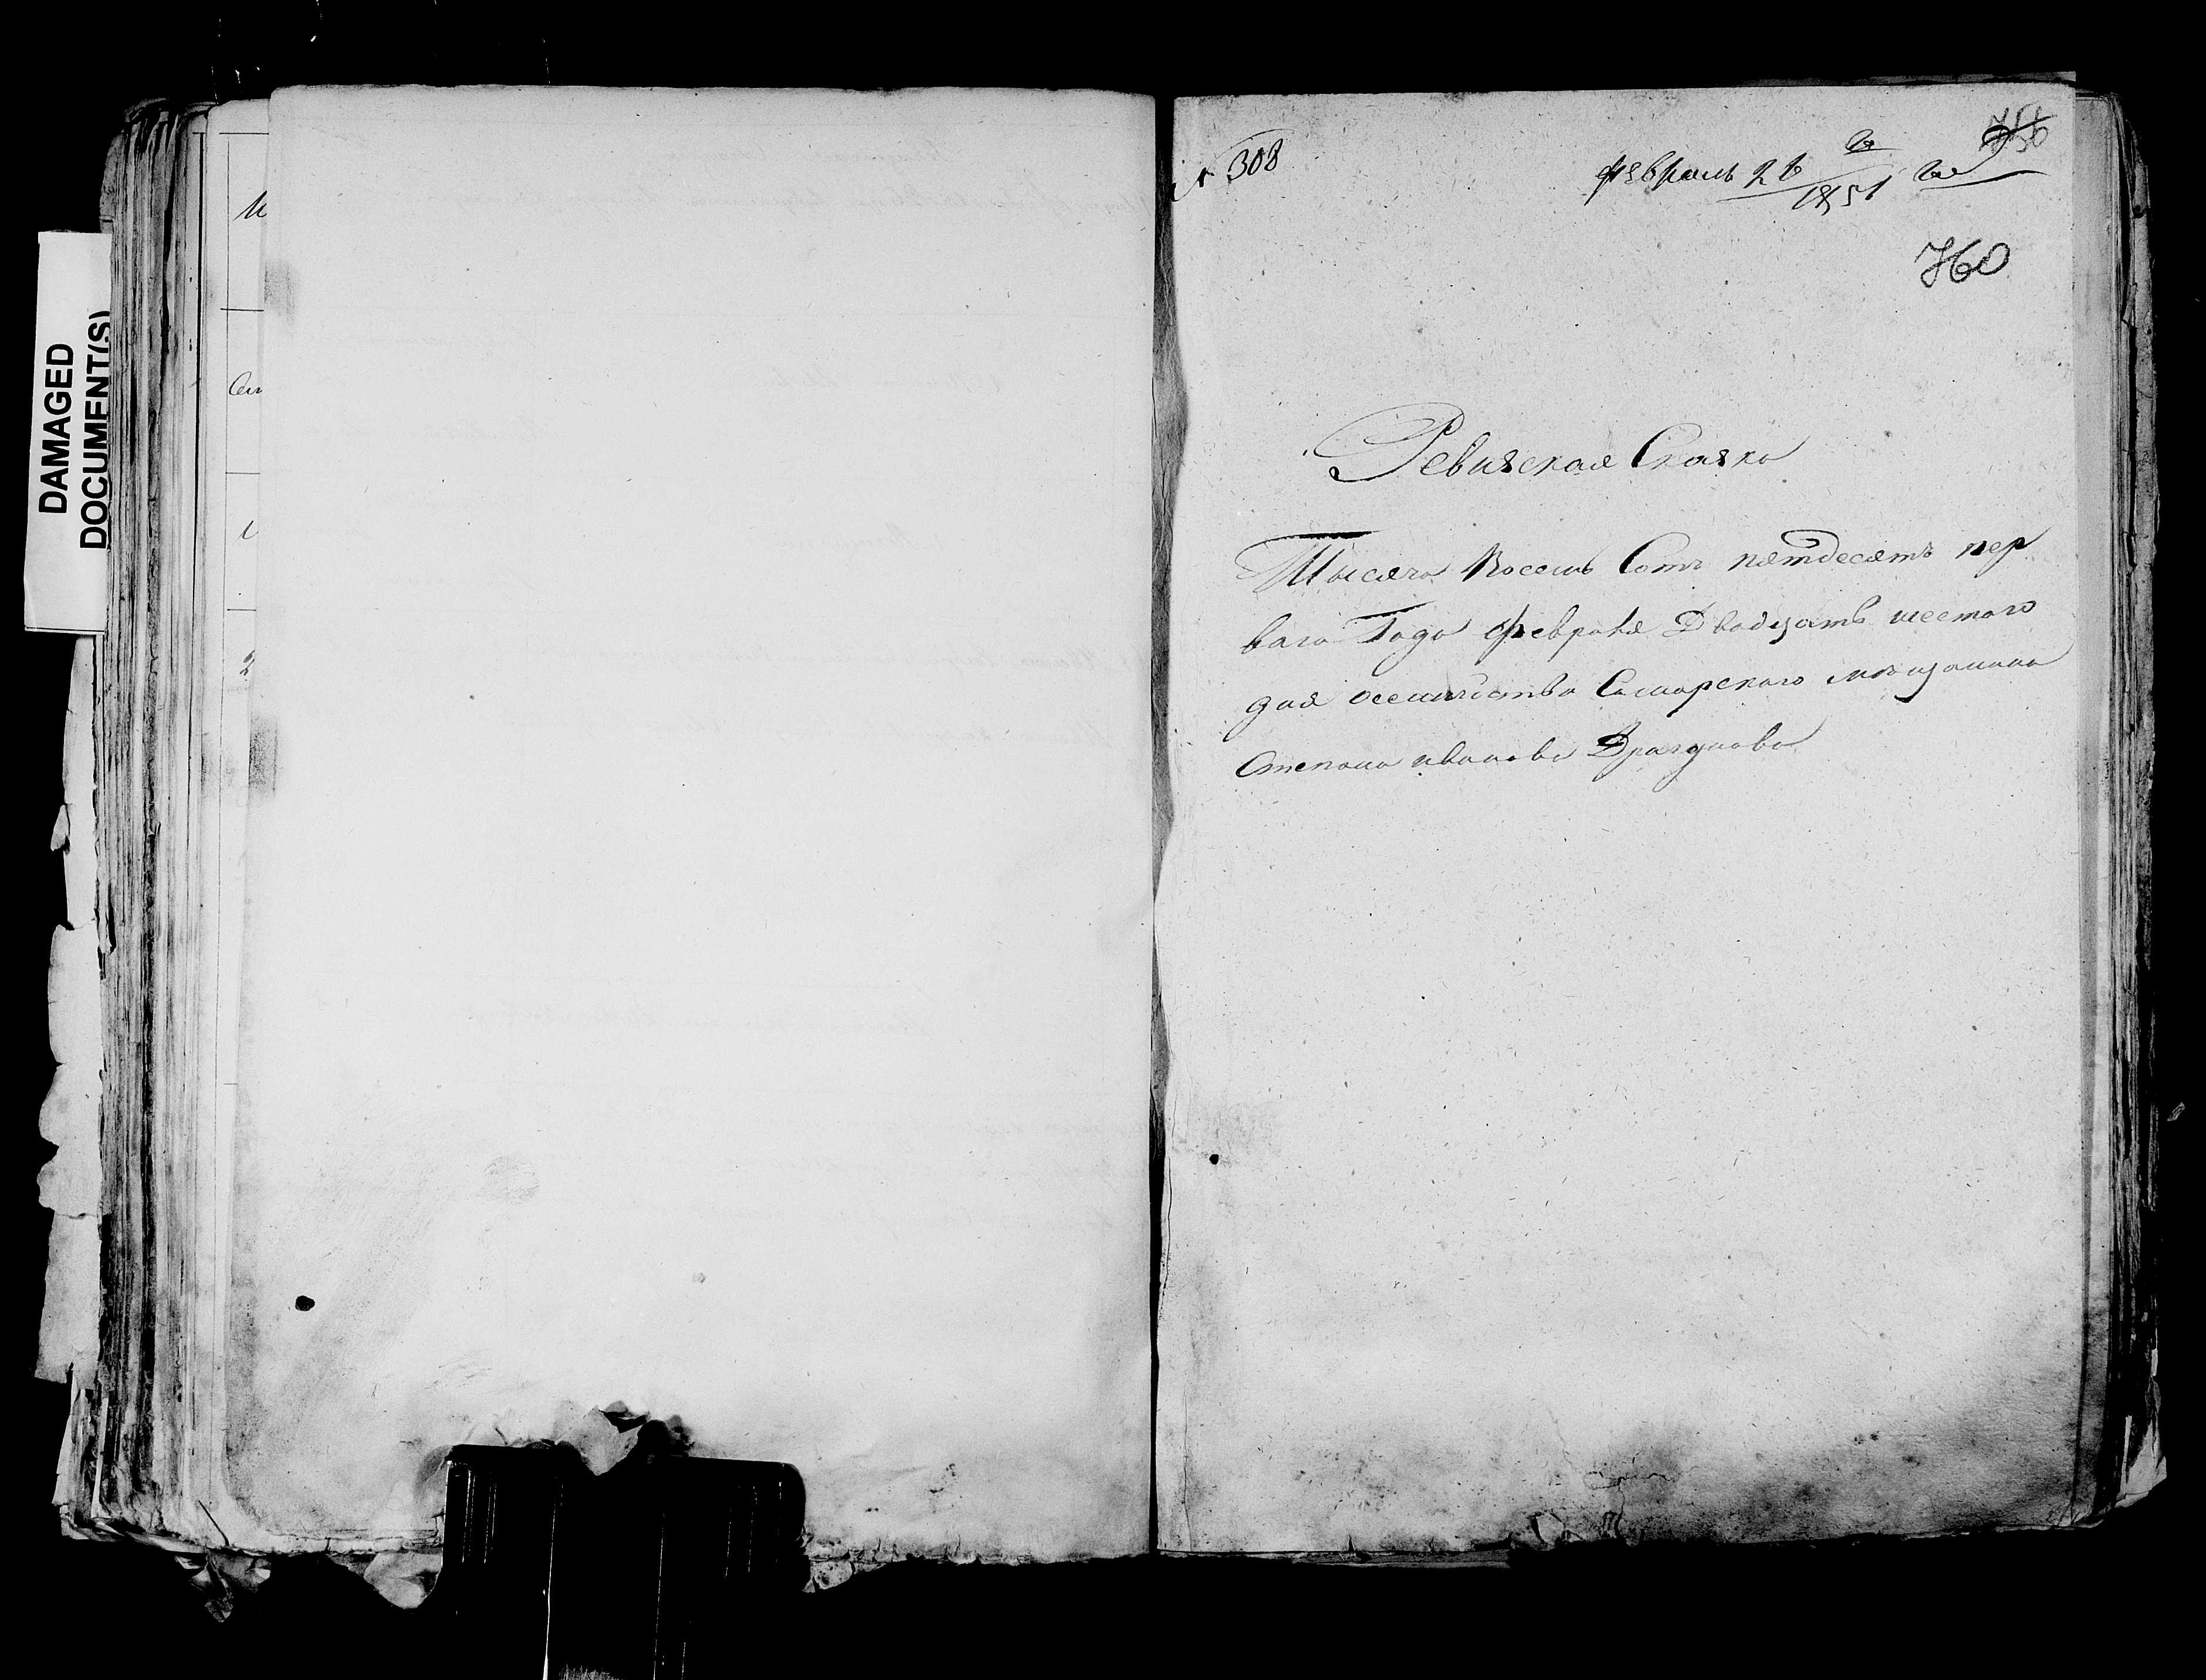 DAMAGED
DOCUMENT(S)
№ 308
Февраль 26 го
1851 го
760
Ревизская Сказка
Тысяча Восемь Сотъ пятдесятъ пер
ваго Года февраля Двадцать шестаго
дня Самарскаго мещанина
Степана иванова